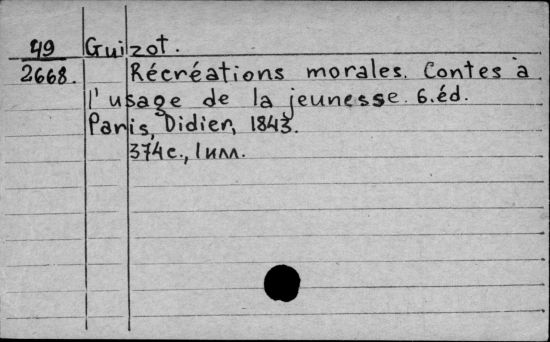 49 Guizot.
2668. Récréations morales. Contes à
l'usage de la jeunesse. 6.éd.
Paris, Didier, 1843.
374с., 1илл.